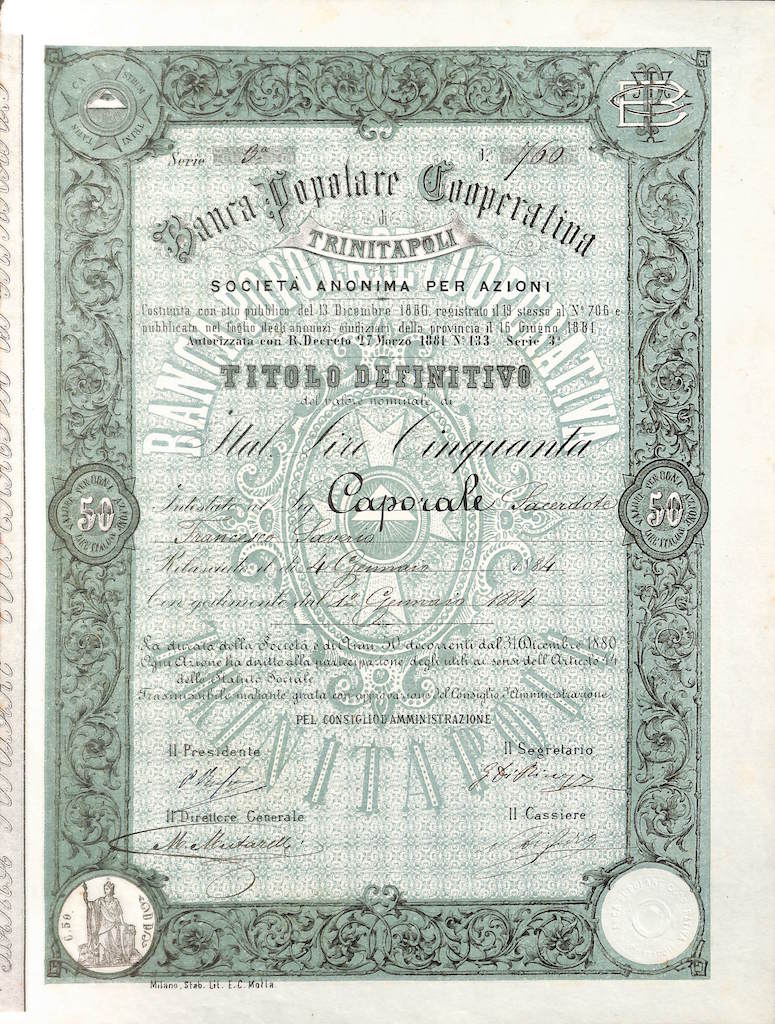 Serie 3ª Nº 760
Banca Popolare Cooperativa
di
TRINITAPOLI
SOCIETÀ ANONIMA PER AZIONI
Costituita con atto pubblico del 13 Dicembre 1880, registrato il 19 stesso al Nº 706 e
pubblicata nel foglio degli annunzi giudiziari della provincia il 15 Giugno 1881
Autorizzata con R. Decreto 27 Marzo 1881 Nº 133 Serie 3ª
TITOLO DEFINITIVO
del valore nominale di
Ital. Lire Cinquanta
Intestato al Sig Caporale Sacerdote
Francesco Saverio
Rilasciato il dì 4 Gennaio 1884
Con godimento dal 1º Gennaio 1884
50
50
La durata della Società è di Anni 50 decorrenti dal 31 Dicembre 1880
Ogni Azione ha dritto alla partecipazione degli utili ai sensi dell'Articolo
dello Statuto Sociale
Trasmissibile mediante girata con approvazione del Consiglio d'Amministrazione
PEL CONSIGLIO D'AMMINISTRAZIONE
Il Presidente Il Segretario
Il Direttore Generale Il Cassiere
C. 50.
Milano, Stab. Lit. E. C. Motta.
BANCA POPOLARE COOPERATIVA
TRINITAPOLI